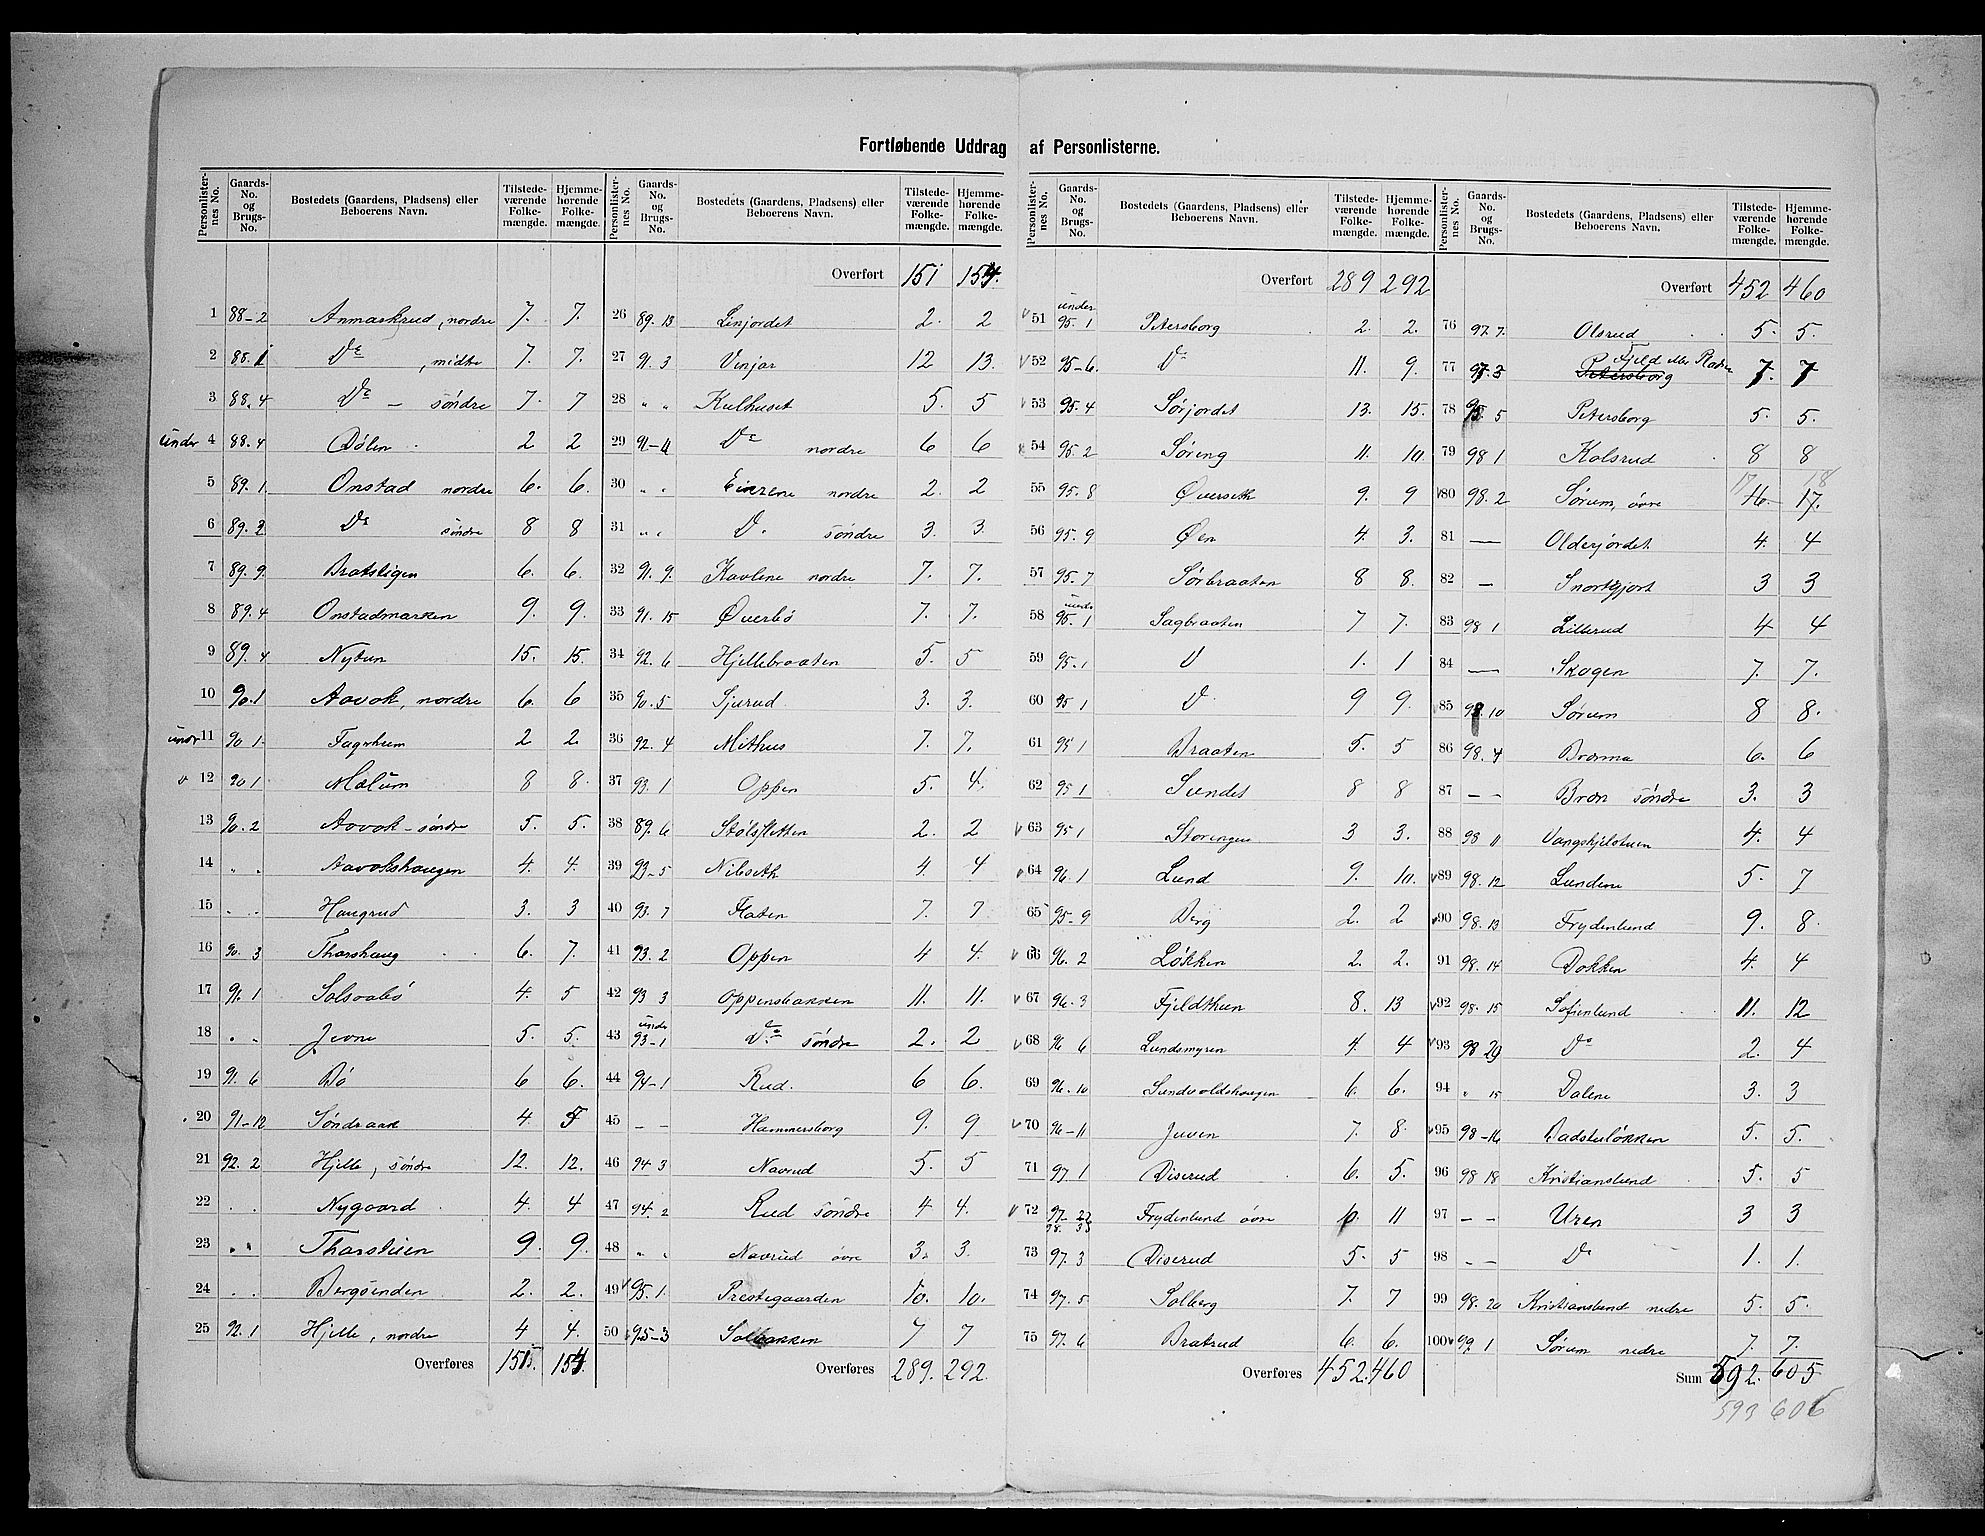 Fortløbende Uddrag af Personlisterne.
Personlisternes No. Gaards-No. og Brugs-No. Bostedets (Gaardens, Pladsens) eller Beboerens Navn. Tilstedeværende Folkemængde. Hjemmehørende Folkemængde.
1 88-2 Anmarkrud, nordre 7. 7.
2 88.1 Do, midtre 7. 7.
3 88.4 Do - söndre 7. 7
under 4 88.4 Dölen 2 2
5 89.1 Onstad nordre 6. 6.
6 89.2 Do söndre 8 8
7 89.9 Bratstigen 6. 6.
8 89.4 Onstadmarken 9. 9.
9 89.4 Nytun 15. 15.
10 90.1 Aavok, nordre 6. 6
under 11 90 1. Fagerhum 2 2.
12 90 1 Mælum 8 8.
13 90.2 Aavok - söndre 5. 5.
14 " " Aavokshaugen 4. 4.
15 Haugrud 3. 3
16 90.3 Thorshaug 6. 7.
17 91.1 Solvabö 4. 5
18 Jevne 5. 5.
19 91.6 Bö 6 6.
20 91-12 Söndraak 4. 5
21 92.2 Hjelle, söndre 12. 12.
22 Nygaard 4. 4
23 " " Thorstuen 9. 9.
24 Bergsenden 2. 2.
25 92.1 Hjelle, nordre 4 4.
Overføres 151. 154.
Overført 151 154.
26 89.13 Linjordet 2. 2
27 91.3 Vinjar 12 13.
28 " " Kulhuset 5. 5
29 91-4 Do nordre 6 6
30 " " nordre 2. 2
31 " " D. söndre 3. 3.
32 91.9. Kavlene nordre 7. 7.
33 91.15 Överbö 7. 7.
34 92.6 Hjellebraaten 5. 5
35 90.5 Sjurud 3. 3.
36 92.4 Mithus 7. 7.
37 93.1 Oppen 5. 4.
38 89.6 Stölsletten 2. 2
39 93-5 Nilseth 4. 4
40 93.7 Flaten 7. 7
41 93.2 Oppen 4 4.
42 93 3 Oppensbakken 11. 11.
43 under 93-1 Do söndre 2. 2
44 94-1 Rud. 6 6.
45 - - Hammersborg 9. 9
46 94.3 Navrud 5. 5
47 94.2 Rud söndre 4 4.
48 " " Navrud övre 3. 3.
49 95.1. Prestegaarden 10. 10.
50 95-3 Solbakken 7 7
Overføres 289. 292.
Overført 289 292
51 under 95.1 Petersborg 2. 2.
52 95-6. Do 11. 9.
53 95.4 Sörjordet 13. 15.
54 95.2 Söring 11. 10.
55 95.8 Överseth 9. 9
56 95.9 Öen 4. 3.
57 95.7 Sörbraaten 8 8.
58 under 95.1 Sagbraaten 7 7.
59 95.1 D 1. 1
60 95 1 D. 9 9.
61 95 1 Braaten 5. 5
62 95 1 Sundet 8 8
63 95 1 Storengen 3 3.
64 96.1 Lund 9. 10.
65 95-9 Berg 2. 2
66 96.2 Lökken 2. 2.
67 96.3 Fjeldthun 8. 13
68 96 6 Lundsmyren 4. 4
69 96.10 Sundvoldshaugen 6. 6.
70 96-11 Juven 7. 8.
71 97.1 Diserud 6. 5.
72 97-22 98.35 Frydenlund övre 10. 11
73 97.3 Diserud 5. 5
74 97.5 Solberg 7. 7
75 97.6 Bratrud 6. 6.
Overføres 452. 460
Overført 452 460
76 97.7. Olsrud 5. 5.
77 97.3 Petersborg Fjeld eller 7. 7
78 95 5 Petersborg 5. 5.
79 98 1 Kolsrud 8 8
80 98.2 Sörum, övre 16. 17. 17 18
81 — Olderjordet 4. 4
82 — 3 3
83 98 1 Lillerud 4 4
84 — Skogen 7. 7.
85 98.10 Sörum 8 8.
86 98.4 Bromma 6. 6
87 - - Bron söndre 3. 3
88 98 11 Vangskjelstuen 4. 4
89 98.12 Lundene 5. 7
90 98.13 Frydenlund 9. 8.
91 98.14 Dokken 4. 4
92 98.15 Sofienlund 11. 12
93 98 29 Do 2. 4
94 " 15 Dalene 3. 3
95 98-16 Badstulökken 5. 5.
96 98 18 Kristianslund 5. 5
97 - - Uren 3 3
98 - - Do 1. 1.
99 98.20 Kristianslund nedre 5. 5.
100 99 1 Sörum nedre 7. 7.
Sum 592. 605
593 606